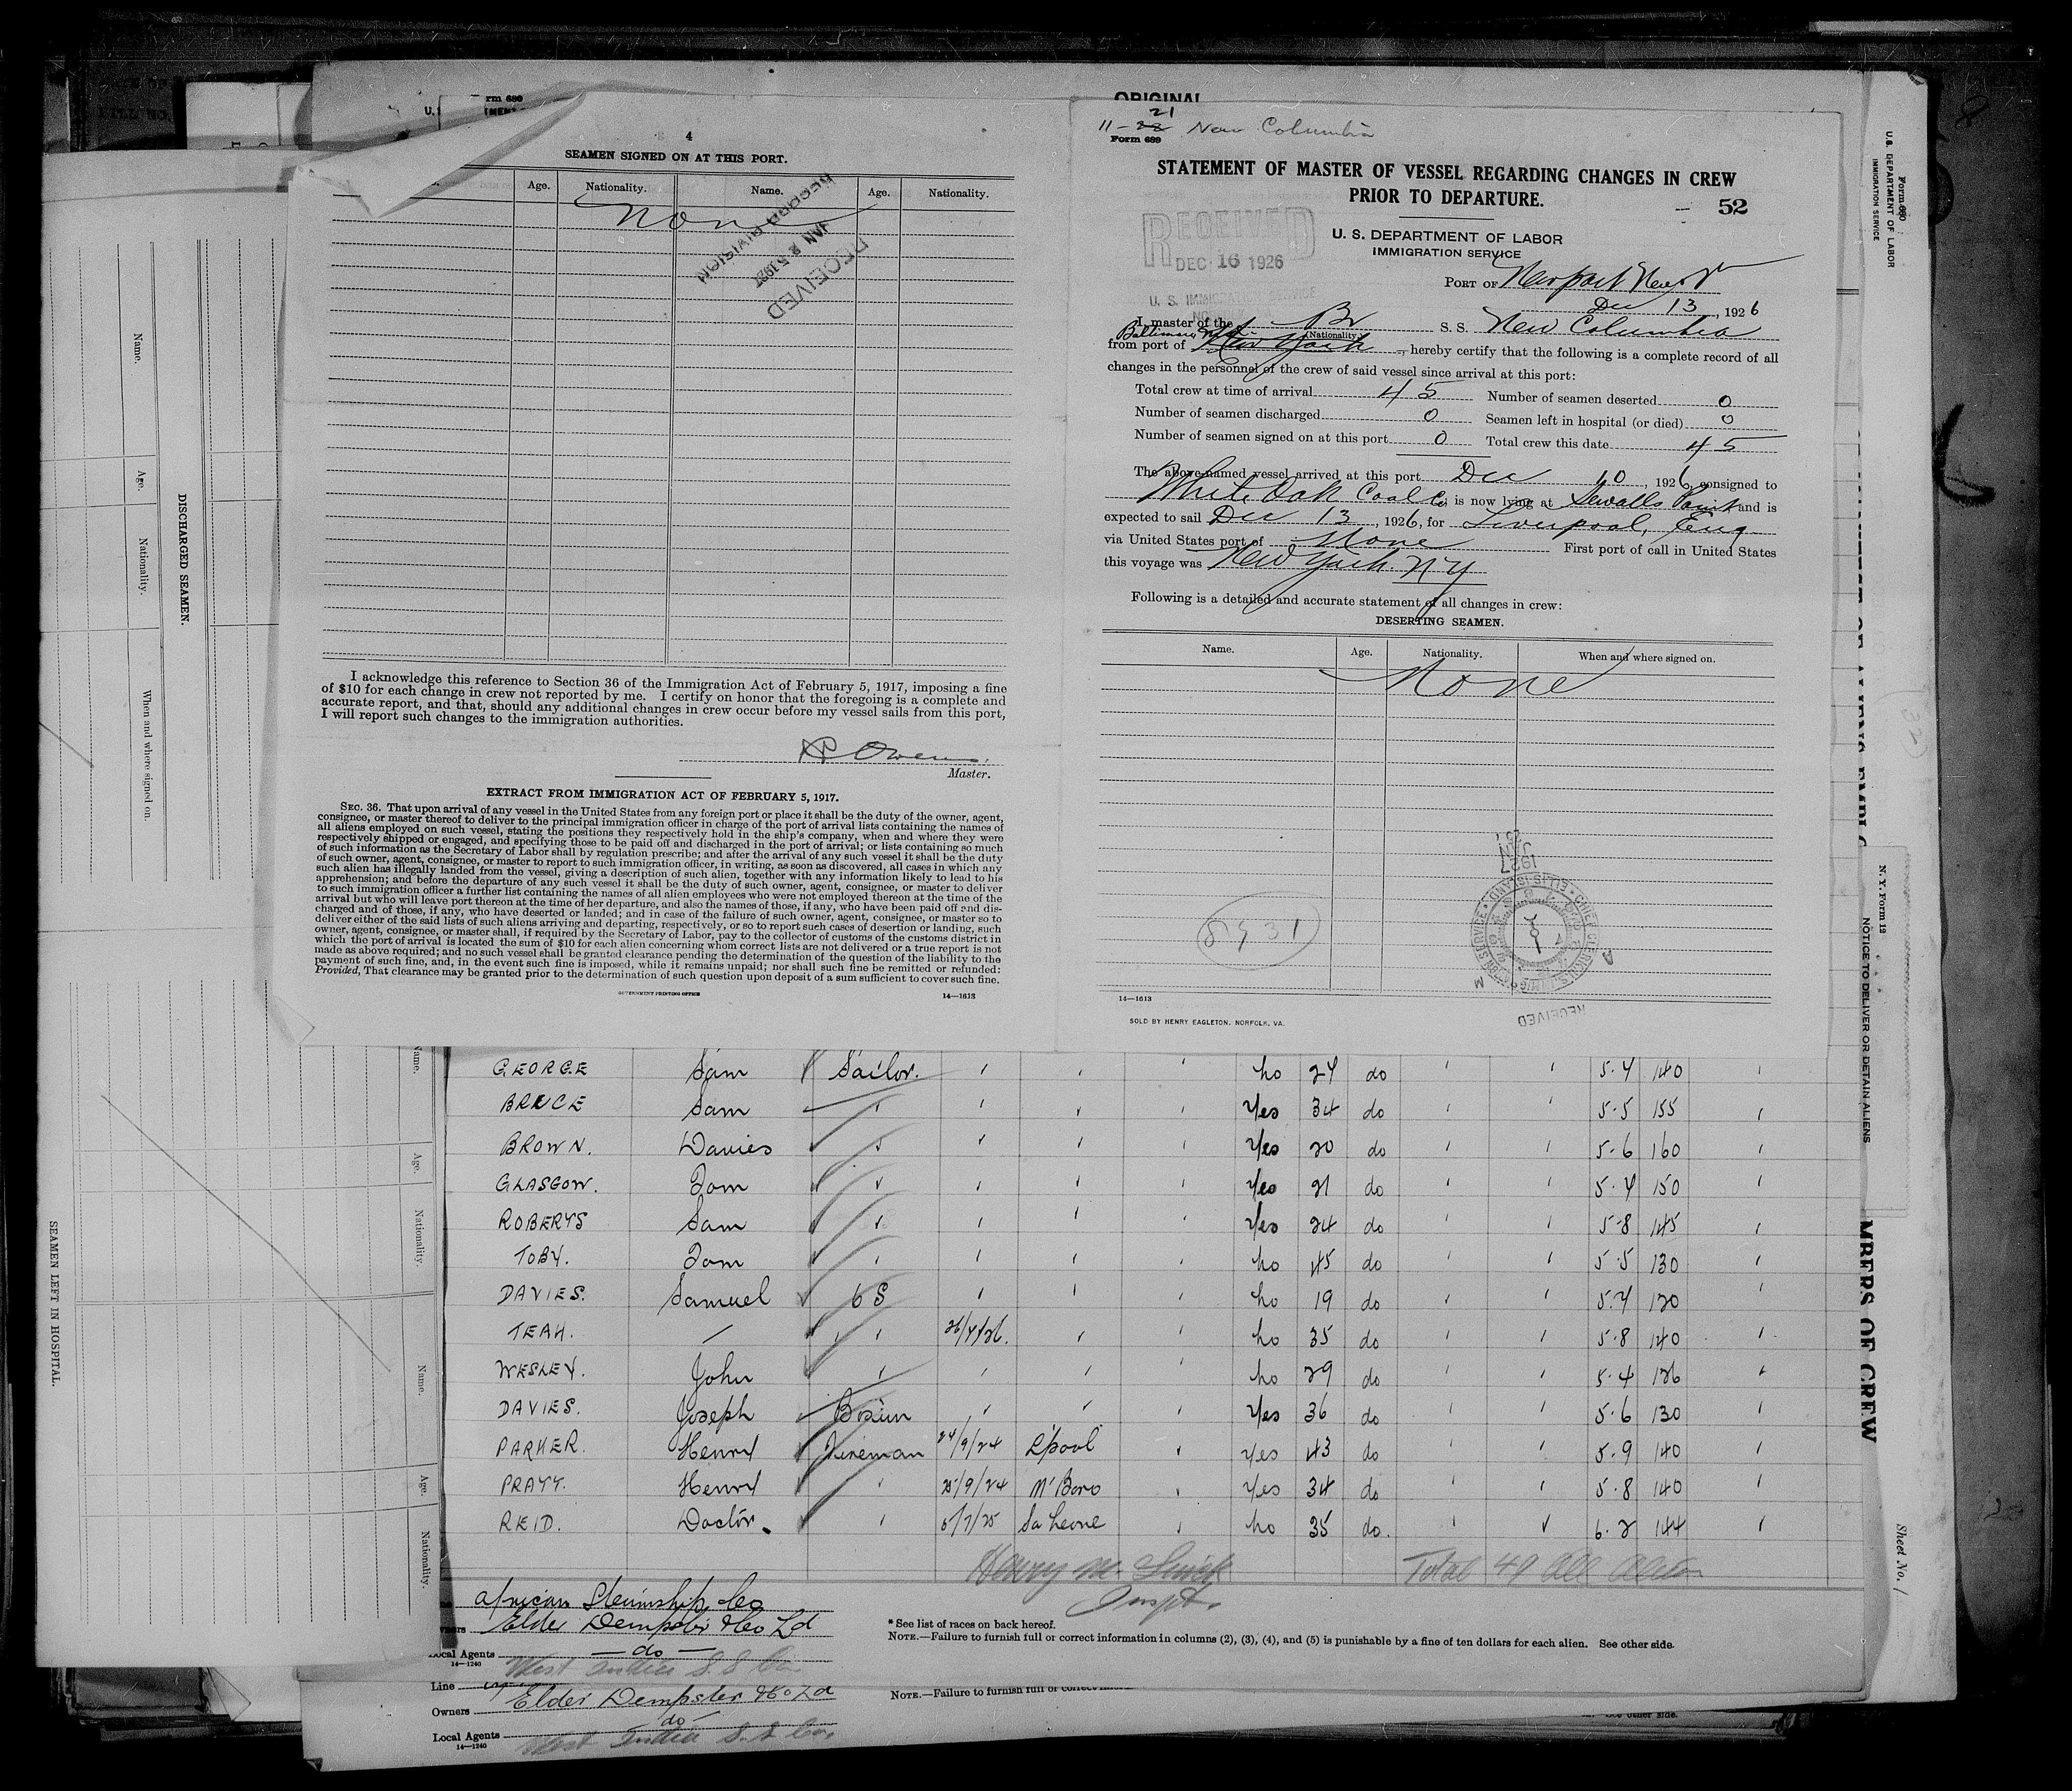 4
SEAMEN SIGNED ON AT THIS PORT.
Age. Nationality. Name. Age. Nationality.
None
RECORD DIVISION
JAN 25 1927
RECEIVED
I acknowledge this reference to Section 36 of the Immigration Act of February 5, 1917, imposing a fine
of $10 for each change in crew not reported by me. I certify on honor that the foregoing is a complete and
accurate report, and that, should any additional changes in crew occur before my vessel sails from this port,
I will report such changes to the immigration authorities.
Owens
Master.
EXTRACT FROM IMMIGRATION ACT OF FEBRUARY 5, 1917.
SEC. 36. That upon arrival of any vessel in the United States from any foreign port or place it shall be the duty of the owner, agent,
consignee, or master thereof to deliver to the principal immigration officer in charge of the port of arrival lists containing the names of
all aliens employed on such vessel, stating the positions they respectively hold in the ship's company, when and where they were
respectively shipped or engaged, and specifying those to be paid off and discharged in the port of arrival; or lists containing so much
of such information as the Secretary of Labor shall by regulation prescribe; and after the arrival of any such vessel it shall be the duty
of such owner, agent, consignee, or master to report to such immigration officer, in writing, as soon as discovered, all cases in which any
such alien has illegally landed from the vessel, giving a description of such alien, together with any information likely to lead to his
apprehension; and before the departure of any such vessel it shall be the duty of such owner, agent, consignee, or master to deliver
to such immigration officer a further list containing the names of all alien employees who were not employed thereon at the time of the
arrival but who will leave port thereon at the time of her departure, and also the names of those, if any, who have been paid off and dis-
charged and of those, if any, who have deserted or landed; and in case of the failure of such owner, agent, consignee, or master so to
deliver either of the said lists of such aliens arriving and departing, respectively, or so to report such cases of desertion or landing, such
owner, agent, consignee, or master shall, if required by the Secretary of Labor, pay to the collector of customs of the customs district in
which the port of arrival is located the sum of $10 for each alien concerning whom correct lists are not delivered or a true report is not
made as above required; and no such vessel shall be granted clearance pending the determination of the question of the liability to the
payment of such fine, and, in the event such fine is imposed, while it remains unpaid; nor shall such fine be remitted or refunded:
Provided, That clearance may be granted prior to the determination of such question upon deposit of a sum sufficient to cover such fine.
GOVERNMENT PRINTING OFFICE 14—1613
ORIGINAL
21
11-28 New Columbia
Form 689
STATEMENT OF MASTER OF VESSEL REGARDING CHANGES IN CREW
PRIOR TO DEPARTURE.
52
RECEIVED
DEC 16 1926
U. S. DEPARTMENT OF LABOR
IMMIGRATION SERVICE
PORT OF Newport News Va
Dec 13, 1926
I, master of the Br S. S. New Columbia
(Nationality)
Baltimore, Md
from port of New York, hereby certify that the following is a complete record of all
changes in the personnel of the crew of said vessel since arrival at this port:
Total crew at time of arrival 45 Number of seamen deserted 0
Number of seamen discharged 0 Seamen left in hospital (or died) 0
Number of seamen signed on at this port 0 Total crew this date 45
The above-named vessel arrived at this port Dec 10, 1926, consigned to
White Oak Coal Co, is now lying at Sewalls Point and is
expected to sail Dec 13, 1926, for Liverpool, Eng
via United States port of None First port of call in United States
this voyage was New York. NY
Following is a detailed and accurate statement of all changes in crew:
DESERTING SEAMEN.
Name. Age. Nationality. When and where signed on.
None
1927
RECEIVED
14—1613
SOLD BY HENRY EAGLETON, NORFOLK, VA.
GEORGE Sam Sailor. no 24 do 5-4 140
BRUCE Sam Yes 34 do 5-5 155
BROWN. Davies Yes 20 do 5-6 160
GLASGOW. Tom Yes 21 do 5-4 150
ROBERTS Sam Yes 24 do 5-8 145
TOBY. Tom no 45 do 5-5 130
DAVIES. Samuel OS no 19 do 5-4 120
TEAH. — 26/4/26. no 35 do 5-8 140
WESLEY. John no 29 do 5-4 126
DAVIES. Joseph Bosun Yes 36 do 5-6 130
PARKER. Henry Fireman 24/9/24 L'pool Yes 43 do 5-9 140
PRATT. Henry 25/9/24 M'Boro Yes 34 do 5-8 140
REID. Doctor. 5/7/25 Sa Leone no 35 do. 6-2 144
Total 49 all Aliens
Inspt.
African Steamship Co
Elder Dempster & Co Ld
Local Agents —do—
14—1240 West India S.S. Co
* See list of races on back hereof.
NOTE.—Failure to furnish full or correct information in columns (2), (3), (4), and (5) is punishable by a fine of ten dollars for each alien. See other side.
Line
Owners Elder Dempster & Co Ld
do
Local Agents West India S.S. Co.
14—1240
NOTE.—Failure to furnish full or correct
See other side.
DISCHARGED SEAMEN.
Name. Age. Nationality. When and where signed on.
SEAMEN LEFT IN HOSPITAL.
Name. Age. Nationality. Name. Age. Nationality.
Form 680
U.S. DEPARTMENT OF LABOR
IMMIGRATION SERVICE
N. Y. Form 12
NOTICE TO DELIVER OR DETAIN ALIENS
MBERS OF CREW
Sheet No. 1